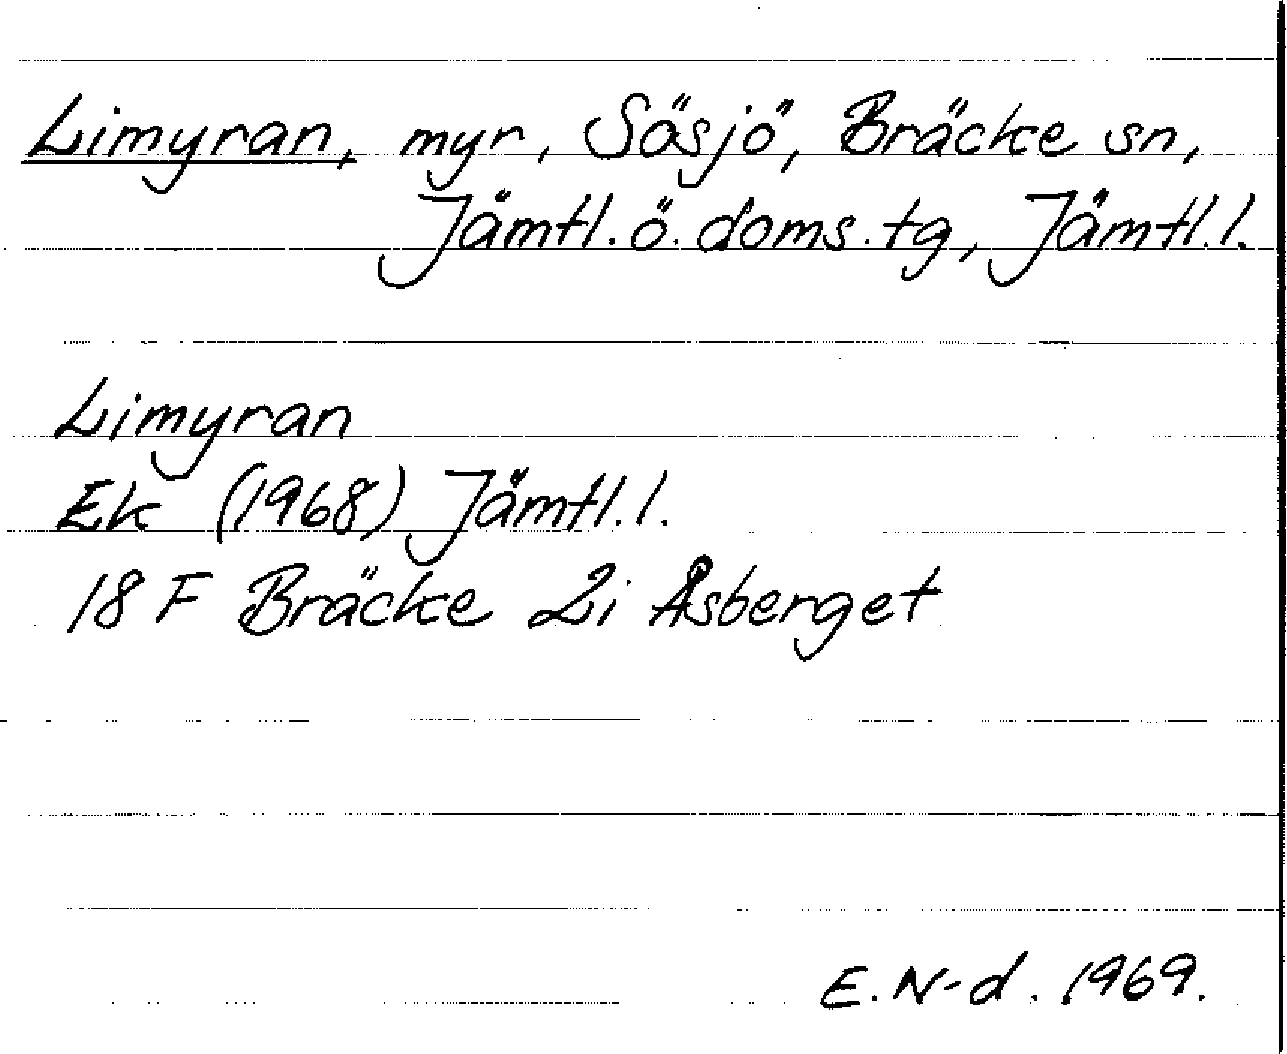 Limyran, myr, Sösjö, Bräcke sn,
Jämtl. ö. doms. tg, Jämtl. l.
Limyran
Ek (1968) Jämtl. l.
18 F Bräcke 2i Åsberget
E. N-d. 1969.